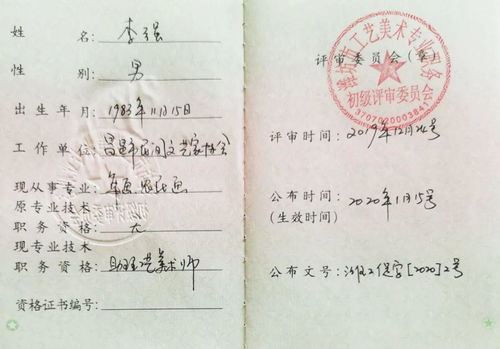 姓名：李强
性别：男
出生年月：1983年11月15日
工作单位：昌邑市民间文艺家协会
现从事专业：年画
原专业技术
职务资格：无
现专业技术
职务资格：助理工艺美术师
资格证书编号：
潍坊市工艺美术专业职务
评审委员会（章）
初级评审委员会
3707020003841
评审时间：2019年12月24号
公布时间：2020年1月15号
（生效时间）
公布文号：[2020]2号